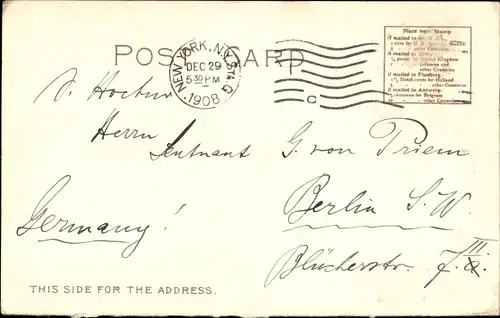 POST CARD
NEW YORK, N.Y. STA. G
DEC 29
5 30 PM
1908
C
Place here Stamp
if mailed in the U.S.
if mailed in Dover
United Kingdom
Colonies and
other Countries
if mailed in Flushing
Dutch cents for Holland
other Countries
if mailed in Antwerp
centimes for Belgium
other Countries
Herrn
Leutnant G. von Priem
Berlin S.W.
Germany!
Blücherstr.
III.
THIS SIDE FOR THE ADDRESS.